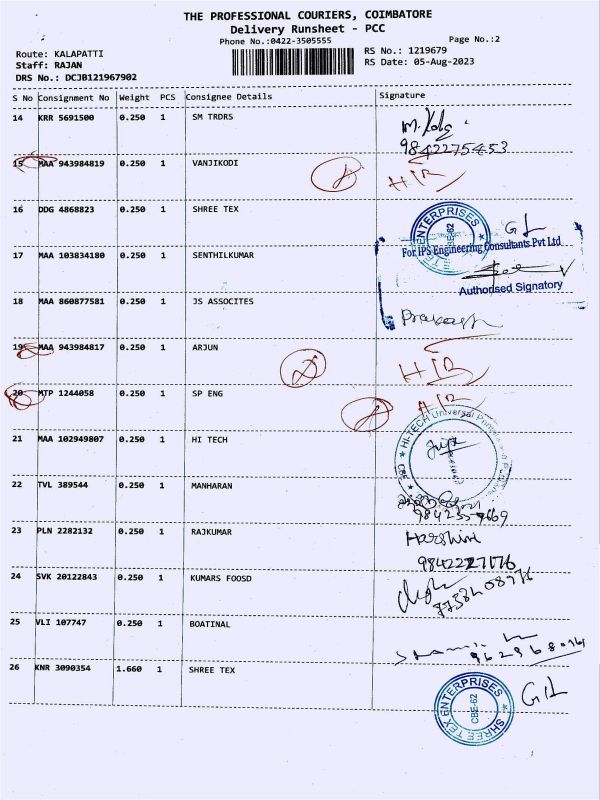 THE PROFESSIONAL COURIERS, COIMBATORE
Delivery Runsheet - PCC
Phone No.:0422-3505555 Page No.:2
Route: KALAPATTI RS No.: 1219679
Staff: RAJAN RS Date: 05-Aug-2023
DRS No.: DCJB121967902
S No Consignment No Weight PCS Consignee Details Signature
14 KRR 5691500 0.250 1 SM TRDRS
9842275453
15 MAA 943984819 0.250 1 VANJIKODI
16 DDG 4868823 0.250 1 SHREE TEX
TEX ENTERPRISES
For IPS Engineering Consultants Pvt Ltd
17 MAA 103834180 0.250 1 SENTHILKUMAR
Authorised Signatory
18 MAA 860877581 0.250 1 JS ASSOCITES
Prakash
19 MAA 943984817 0.250 1 ARJUN
20 MTP 1244058 0.250 1 SP ENG
21 MAA 102949807 0.250 1 HI TECH
HI-TECH Universal
CBE
22 TVL 389544 0.250 1 MANHARAN
23 PLN 2282132 0.250 1 RAJKUMAR
Harshini
9842227176
24 SVK 20122843 0.250 1 KUMARS FOOSD
25 VLI 107747 0.250 1 BOATINAL
26 KNR 3090354 1.660 1 SHREE TEX
SHREE TEX ENTERPRISES
CBE-62